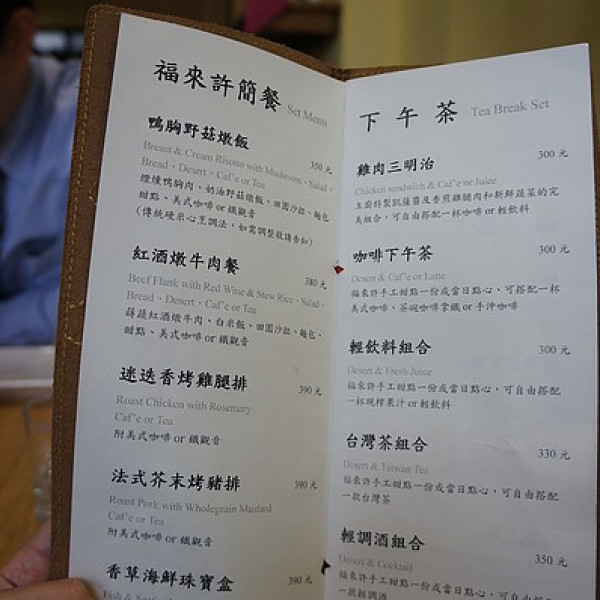 福來許簡餐 Set Menu
鴨胸野菇燉飯 350元
Breast & Cream Risotto with Mushroom、Salad、
Bread、Desert、Caf'e or Tea
煙燻鴨胸肉、奶油野菇燉飯、田園沙拉、麵包
甜點、美式咖啡 or 鐵觀音
(傳統硬米心烹調法，如需調整敬請告知)
紅酒燉牛肉餐 380元
Beef Flank with Red Wine & Stew Rice、Salad、
Bread、Desert、Caf'e or Tea
蒔蔬紅酒燉牛肉、白米飯、田園沙拉、麵包、
甜點、美式咖啡 or 鐵觀音
迷迭香烤雞腿排 390元
Roast Chicken with Rosemary
Caf'e or Tea
附美式咖啡 or 鐵觀音
法式芥末烤豬排 390元
Roast Pork with Wholegrain Mustard
Caf'e or Tea
附美式咖啡 or 鐵觀音
香草海鮮珠寶盒 390元
Fish &
下午茶 Tea Break Set
雞肉三明治 300元
Chicken sandwich & Caf'e or Juice
主廚特製凱薩醬及香煎雞腿肉和新鮮蔬菜的完
美組合，可自由搭配一杯咖啡 or 輕飲料
咖啡下午茶 300元
Desert & Caf'e or Latte
福來許手工甜點一份或當日點心，可搭配一杯
美式咖啡、茶碗咖啡拿鐵 or 手沖咖啡
輕飲料組合 300元
Desert & Fresh Juice
福來許手工甜點一份或當日點心，可自由搭配
一杯現榨果汁 or 輕飲料
台灣茶組合 330元
Desert & Taiwan Tea
福來許手工甜點一份或當日點心，可自由搭配
一款台灣茶
輕調酒組合 350元
Desert & Cocktail
福來許手工甜點一份或當日點心，可自由搭配
一款輕調酒